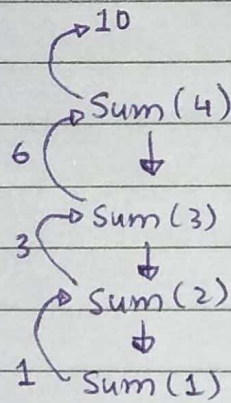 10
Sum(4)
6
Sum(3)
3
Sum(2)
1
Sum(1)